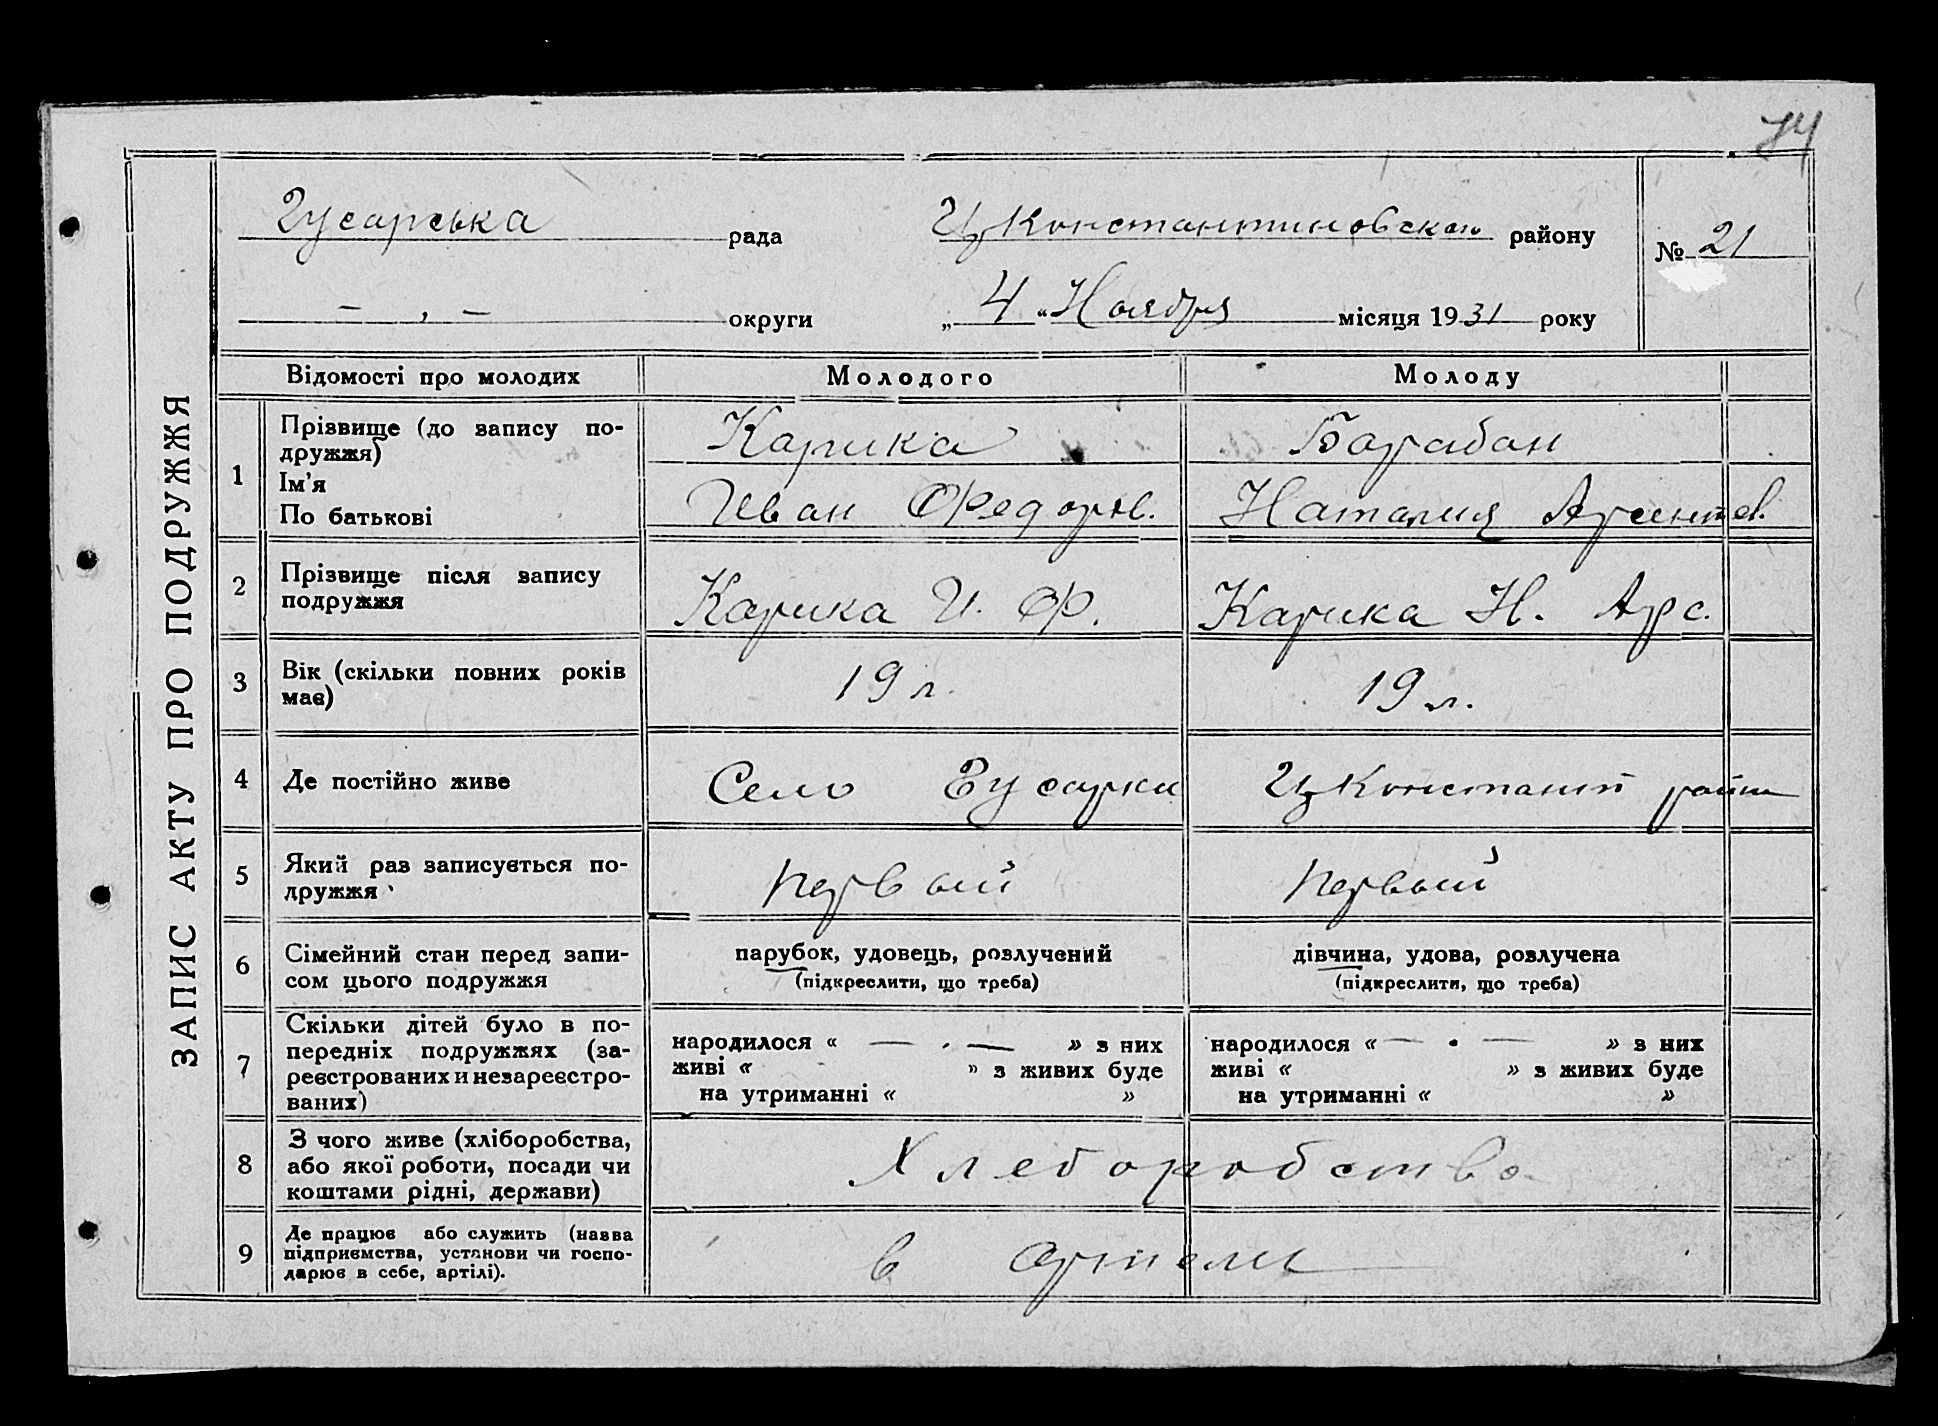 74
Гусарська рада ЦКонстантиновского району № 21
— , — округи „ 4 “ Ноября місяця 1931 року
ЗАПИС АКТУ ПРО ПОДРУЖЖЯ
Відомості про молодих Молодого Молоду
1 Прізвище (до запису по-
дружжя) Карика Барабан
Ім'я
По батькові Иван Федоров. Наталия Арсентев.
2 Прізвище після запису
подружжя Карика И. Ф. Карика Н. Арс.
3 Вік (скільки повних років
має) 19 л. 19 л.
4 Де постійно живе Село Гусарки ЦКонстант райна
5 Який раз записується по-
дружжя первый первый
6 Сімейний стан перед запи-
сом цього подружжя
парубок, удовець, розлучений
(підкреслити, що треба)
дівчина, удова, розлучена
(підкреслити, що треба)
7 Скільки дітей було в по-
передніх подружжях (за-
реєстрованих и незареєстро-
ваних)
народилося « — . — » з них
живі « » з живих буде
на утриманні « »
народилося « — . — » з них
живі « » з живих буде
на утриманні « »
8 З чого живе (хліборобства,
або якої роботи, посади чи
коштами рідні, держави)
Хлеборобство
9 Де працює або служить (назва
підприємства, установи чи госпо-
дарює в себе, артілі).
в артели